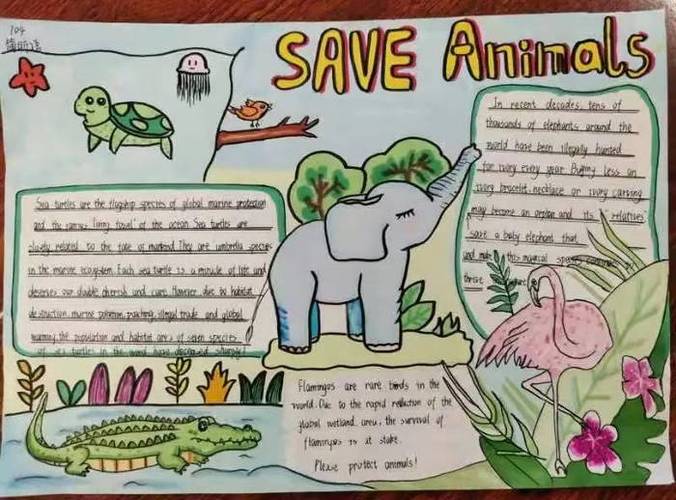 104
SAVE Animals
In recent decades, tens of
thousands of elephants around the
world have been illegally hunted
for ivory every year. Buying less an
ivory bracelet, necklace or ivory carving
may become an orphan and its "relatives"
save a baby elephant that
and make this magical species
thrive
Sea turtles are the flagship species of global marine protection
and the famous "living fossil" of the ocean. Sea turtles are
closely related to the fate of mankind. They are umbrella species
in the marine ecosystem. Each sea turtle is a miracle of life and
deserves our double cherish and care. However, due to habitat
destruction, marine pollution, poaching, illegal trade and global
warming, the population and habitat area of seven species
of sea turtles in the world have decreased sharply!
Flamingos are rare birds in the
world. Due to the rapid reduction of the
global wetland area, the survival of
flamingos is at stake.
Please protect animals!